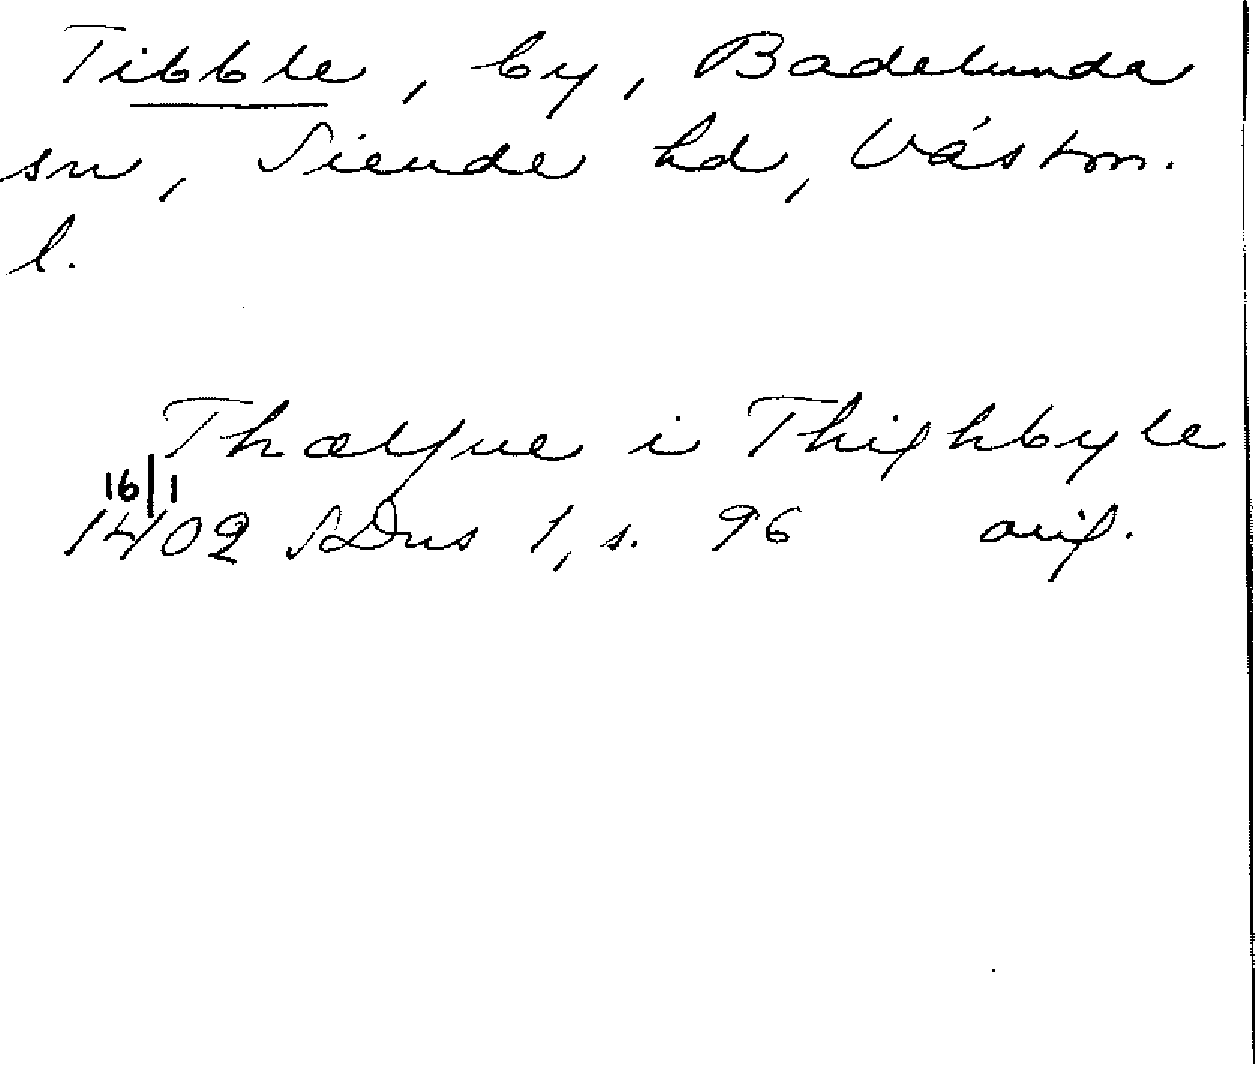 Tibble, by, Badelunda
sn, Siende hd, Västm.
l.
Thælfue i Thighbyle
16/1
1402 SDns 1, s. 96 orig.